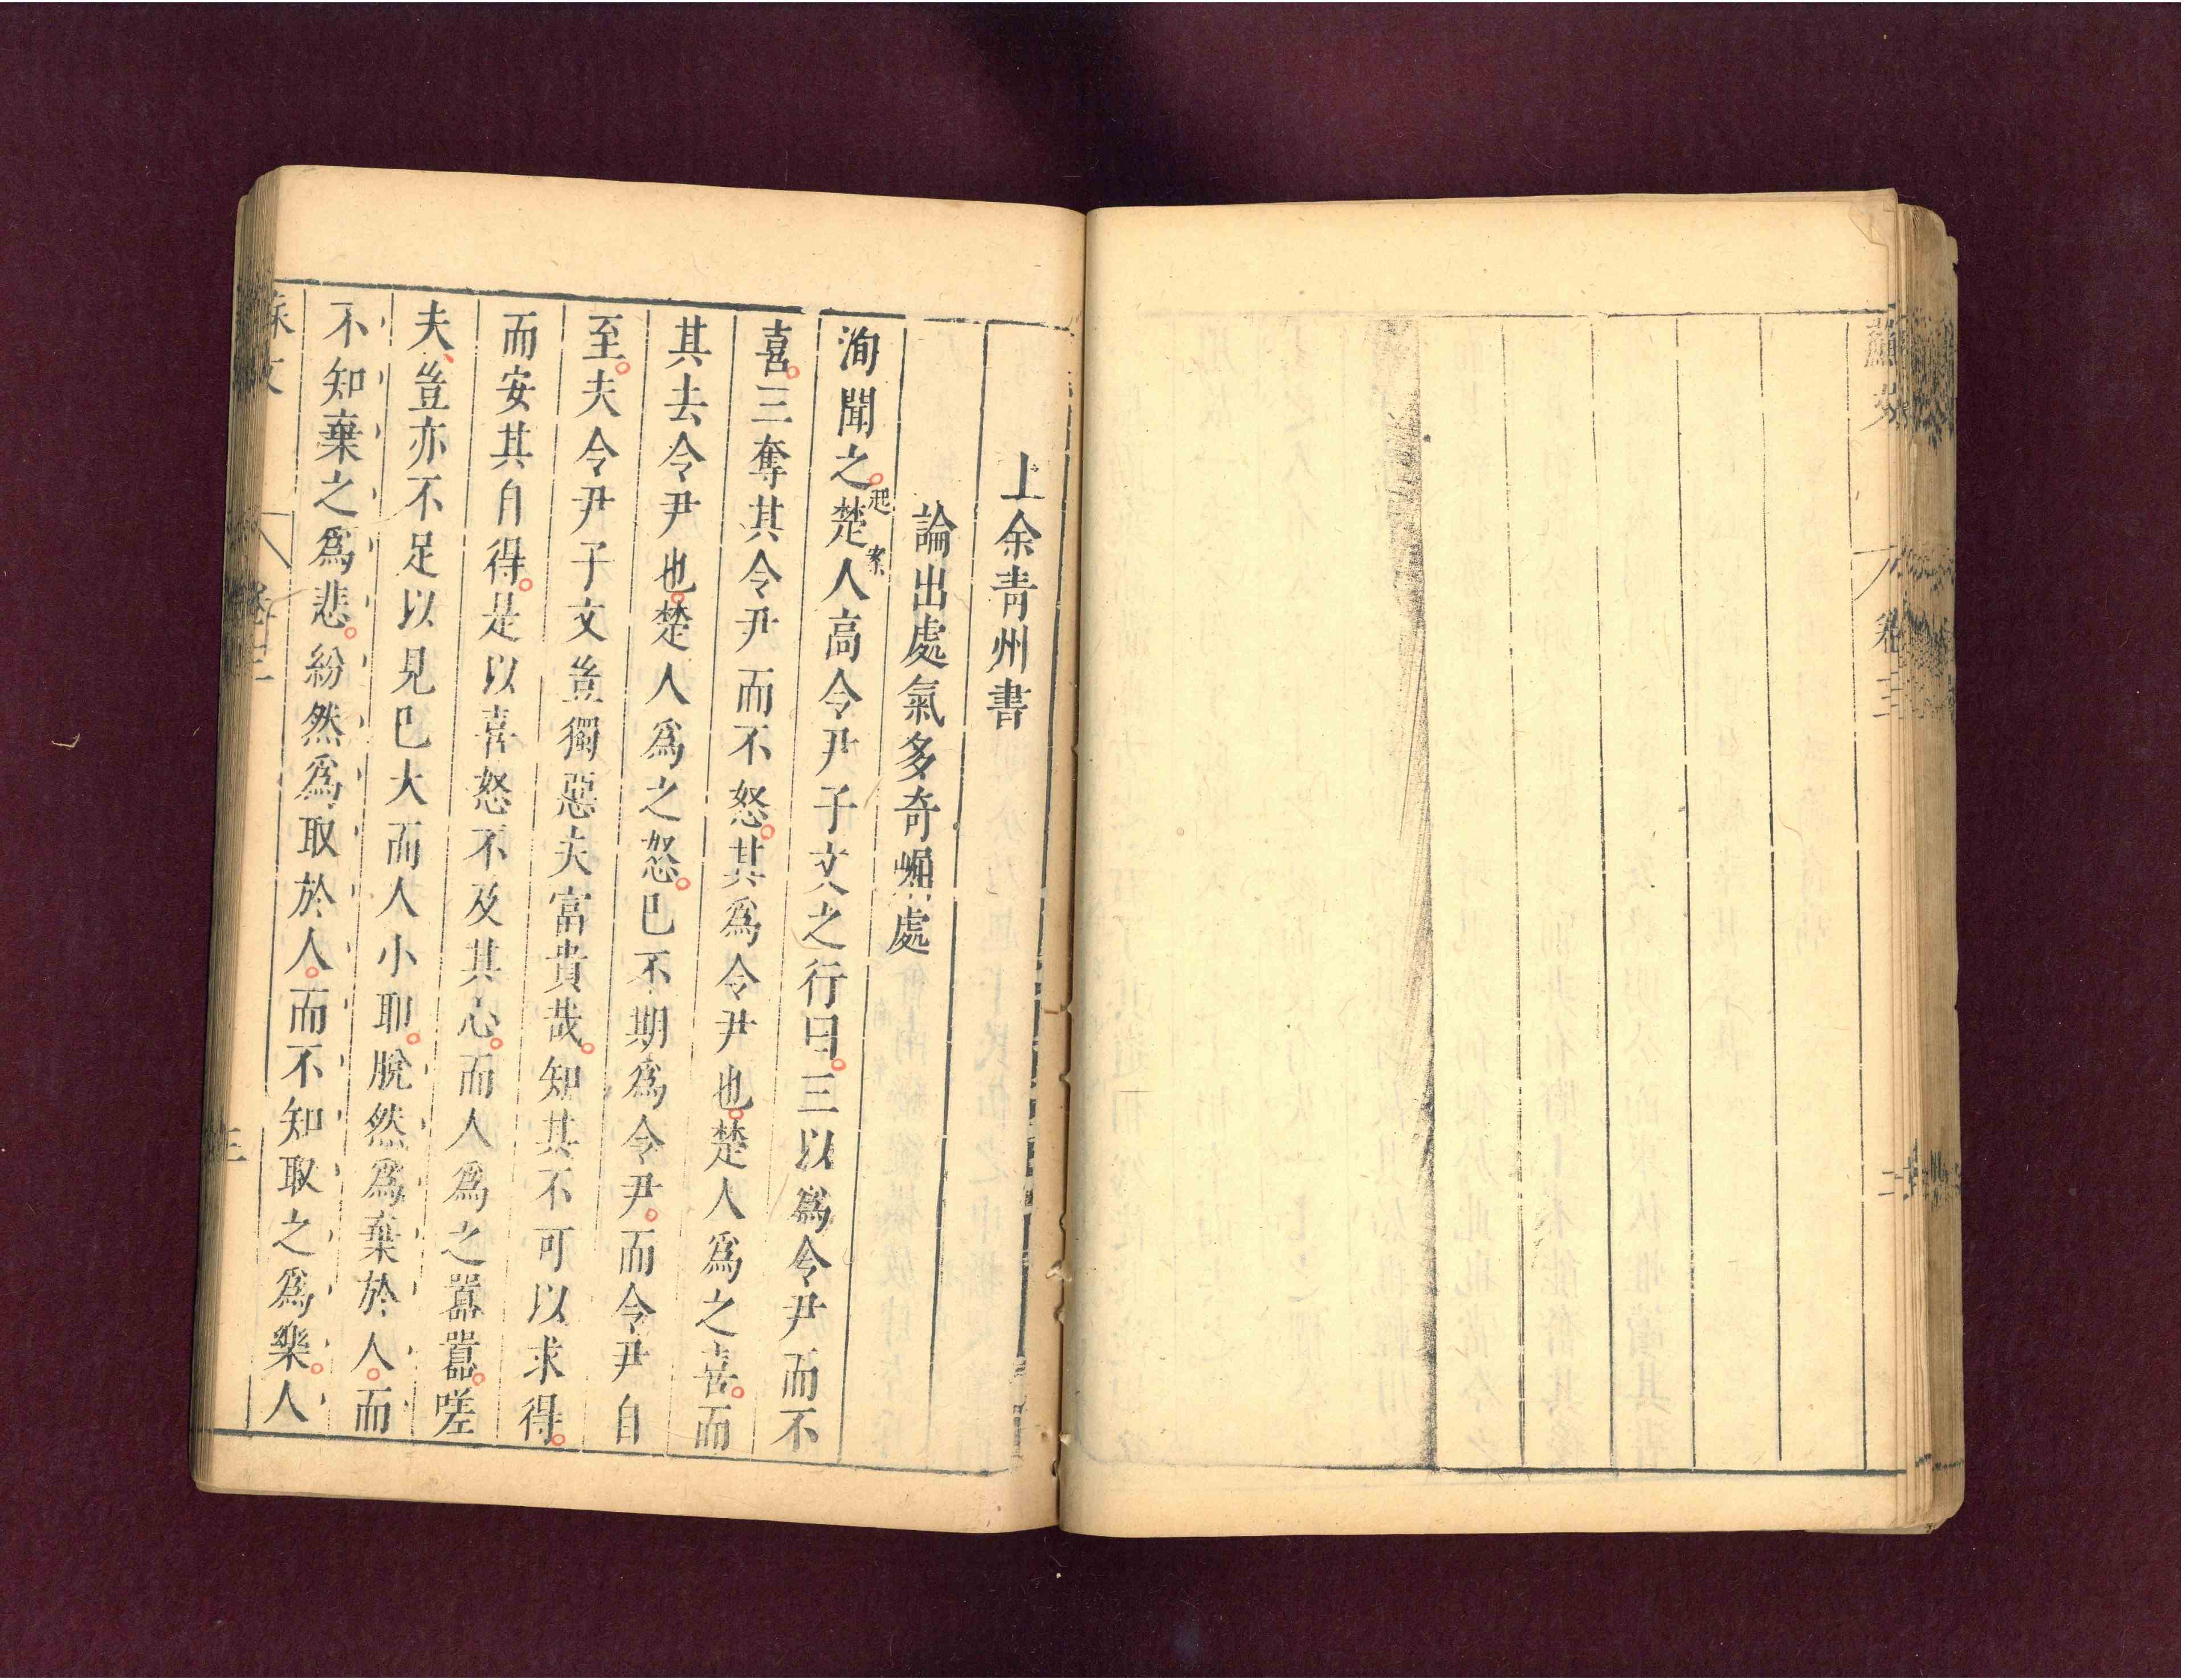 蘇文
卷三
上余青州書
論出處氣多奇崛處
洵聞之楚人高令尹子文之行曰三以爲令尹而不
起案
喜三奪其令尹而不怒其爲令尹也楚人爲之喜而
其去令尹也楚人爲之怒已不期爲令尹而令尹自
至夫令尹子文豈獨惡夫富貴哉知其不可以求得
而安其自得是以喜怒不及其心而人爲之囂囂嗟
夫豈亦不足以見已大而人小耶脫然爲棄於人而
不知棄之爲悲紛然爲取於人而不知取之爲樂人
蘇文
卷三